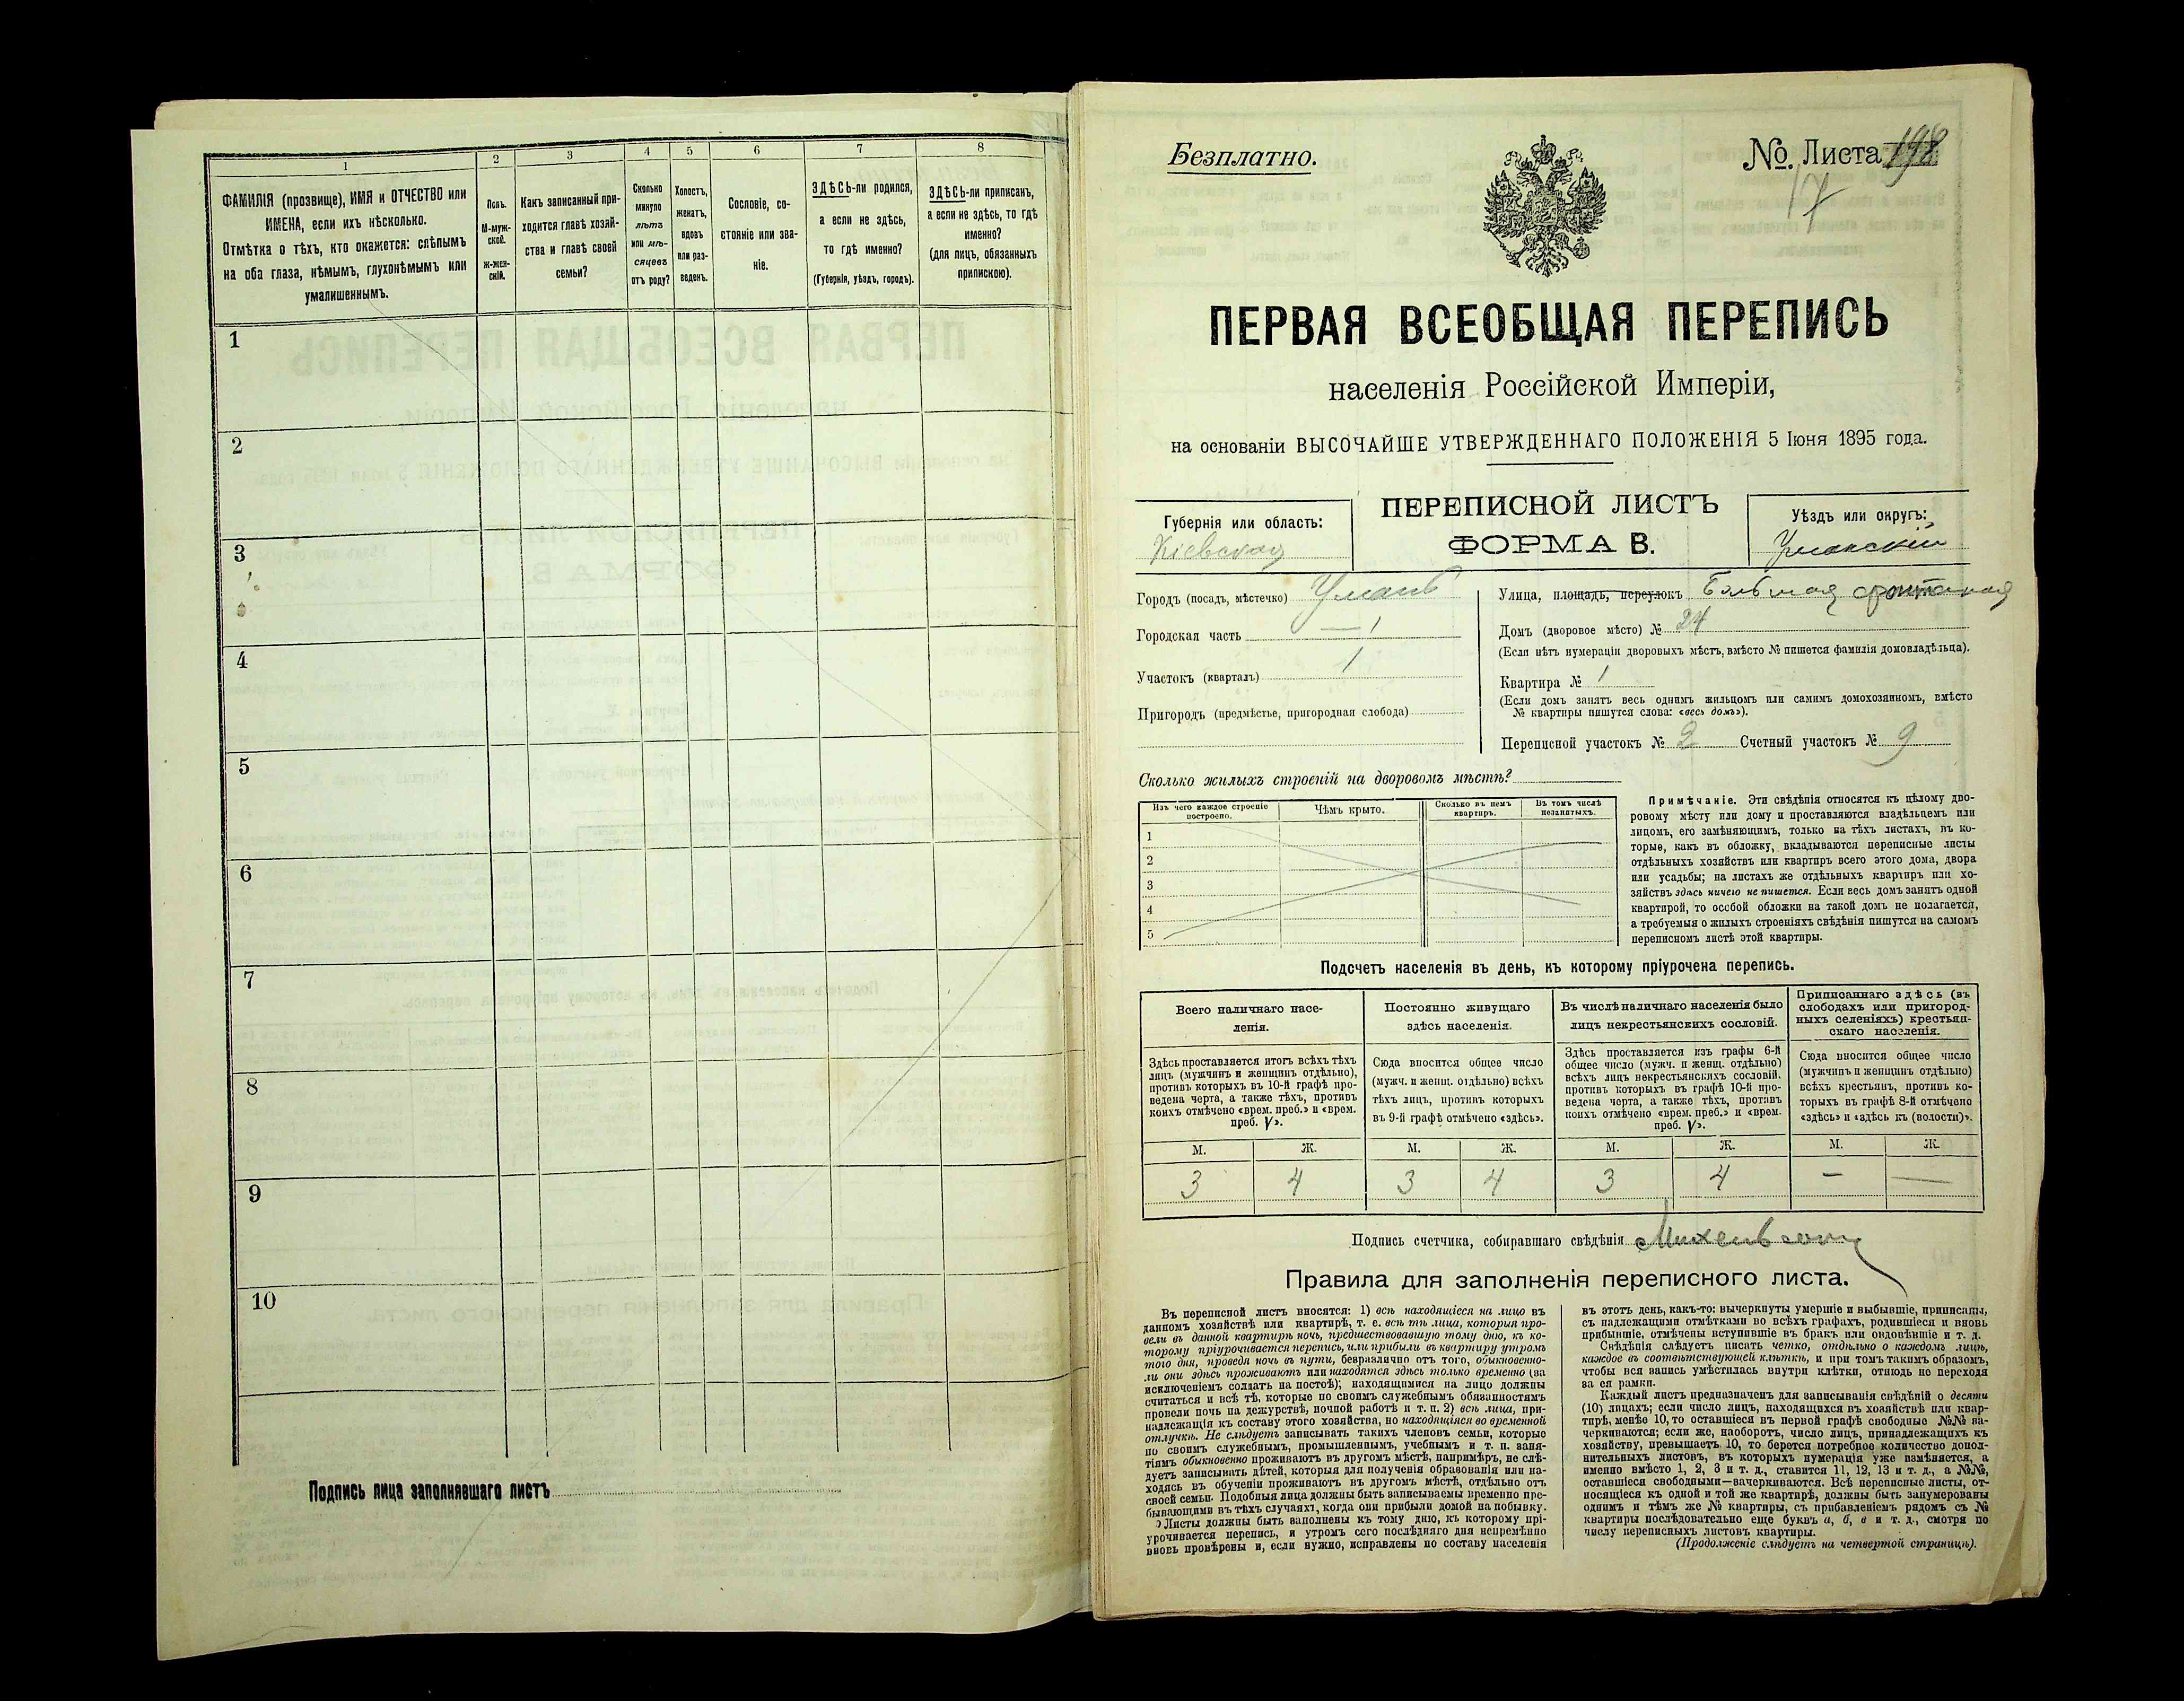 1
2
3
4
5
6
7
8
ФАМИЛІЯ (прозвище), ИМЯ и ОТЧЕСТВО или
ИМЕНА, если ихъ нѣсколько.
Отмѣтка о тѣхъ, кто окажется: слѣпымъ
на оба глаза, нѣмымъ, глухонѣмымъ или
умалишеннымъ.
Полъ.
М-муж-
ской.
Ж-жен-
скій.
Какъ записанный при-
ходится главѣ хозяй-
ства и главѣ своей
семьи?
Сколько
минуло
лѣтъ
или мѣ-
сяцевъ
отъ роду?
Холостъ,
женатъ,
вдовъ
или раз-
веденъ.
Сословіе, со-
стояніе или зва-
ніе.
ЗДѢСЬ-ли родился,
а если не здѣсь,
то гдѣ именно?
(Губернія, уѣздъ, городъ).
ЗДѢСЬ-ли приписанъ,
а если не здѣсь, то гдѣ
именно?
(для лицъ, обязанныхъ
припискою).
1
2
3
4
5
6
7
8
9
10
Подпись лица заполнявшаго листъ
Безплатно.
№ Листа 198
17
ПЕРВАЯ ВСЕОБЩАЯ ПЕРЕПИСЬ
населенія Россійской Имперіи,
на основаніи ВЫСОЧАЙШЕ УТВЕРЖДЕННАГО ПОЛОЖЕНІЯ 5 Іюня 1895 года.
Губернія или область:
Кіевская
ПЕРЕПИСНОЙ ЛИСТЪ
ФОРМА В.
Уѣздъ или округъ:
Уманскій
Городъ (посадъ, мѣстечко) Умань
Городская часть 1
Участокъ (кварталъ) 1
Пригородъ (предмѣстье, пригородная слобода)
Улица, площадь, переулокъ Большая фонтанная
Домъ (дворовое мѣсто) № 24
(Если нѣтъ нумераціи дворовыхъ мѣстъ, вмѣсто № пишется фамилія домовладѣльца).
Квартира № 1
(Если домъ занятъ весь однимъ жильцомъ или самимъ домохозяиномъ, вмѣсто
№ квартиры пишутся слова: «весь домъ»).
Переписной участокъ № 2 Счетный участокъ № 9
Сколько жилыхъ строеній на дворовомъ мѣстѣ?
Изъ чего каждое строеніе
построено.
Чѣмъ крыто.
Сколько въ немъ
квартиръ.
Въ томъ числѣ
незанятыхъ.
1
2
3
4
5
Примѣчаніе. Эти свѣдѣнія относятся къ цѣлому дво-
ровому мѣсту или дому и проставляются владѣльцемъ или
лицомъ, его замѣняющимъ, только на тѣхъ листахъ, въ ко-
торые, какъ въ обложку, вкладываются переписные листы
отдѣльныхъ хозяйствъ или квартиръ всего этого дома, двора
или усадьбы; на листахъ же отдѣльныхъ квартиръ или хо-
зяйствъ здѣсь ничего не пишется. Если весь домъ занятъ одной
квартирой, то особой обложки на такой домъ не полагается,
а требуемыя о жилыхъ строеніяхъ свѣдѣнія пишутся на самомъ
переписномъ листѣ этой квартиры.
Подсчетъ населенія въ день, къ которому пріурочена перепись.
Всего наличнаго насе-
ленія.
Постоянно живущаго
здѣсь населенія.
Въ числѣ наличнаго населенія было
лицъ некрестьянскихъ сословій.
Приписаннаго здѣсь (въ
слободахъ или пригород-
ныхъ селеніяхъ) крестьян-
скаго населенія.
Здѣсь проставляется итогъ всѣхъ тѣхъ
лицъ (мужчинъ и женщинъ отдѣльно),
противъ которыхъ въ 10-й графѣ про-
ведена черта, а также тѣхъ, противъ
коихъ отмѣчено «врем. преб.» и «врем.
преб. V».
Сюда вносится общее число
(мужч. и женщ. отдѣльно) всѣхъ
тѣхъ лицъ, противъ которыхъ
въ 9-й графѣ отмѣчено «здѣсь».
Здѣсь проставляется изъ графы 6-й
общее число (мужч. и женщ. отдѣльно)
всѣхъ лицъ некрестьянскихъ сословій,
противъ которыхъ въ графѣ 10-й про-
ведена черта, а также тѣхъ, противъ
коихъ отмѣчено «врем. преб.» и «врем.
преб. V».
Сюда вносится общее число
(мужчинъ и женщинъ отдѣльно)
всѣхъ крестьянъ, противъ ко-
торыхъ въ графѣ 8-й отмѣчено
«здѣсь» и «здѣсь къ (волости)».
М. Ж. М. Ж. М. Ж. М. Ж.
3 4 3 4 3 4 — —
Подпись счетчика, собиравшаго свѣдѣнія
Правила для заполненія переписного листа.
Въ переписной листъ вносятся: 1) всѣ находящіеся на лицо въ
данномъ хозяйствѣ или квартирѣ, т. е. всѣ тѣ лица, которыя про-
вели въ данной квартирѣ ночь, предшествовавшую тому дню, къ ко-
торому пріурочивается перепись, или прибыли въ квартиру утромъ
того дня, проведя ночь въ пути, безразлично отъ того, обыкновенно-
ли они здѣсь проживаютъ или находятся здѣсь только временно (за
исключеніемъ солдатъ на постоѣ); находящимися на лицо должны
считаться и всѣ тѣ, которые по своимъ служебнымъ обязанностямъ
провели ночь на дежурствѣ, ночной работѣ и т. п. 2) всѣ лица, при-
надлежащія къ составу этого хозяйства, но находящіяся во временной
отлучкѣ. Не слѣдуетъ записывать такихъ членовъ семьи, которые
по своимъ служебнымъ, промышленнымъ, учебнымъ и т. п. заня-
тіямъ обыкновенно проживаютъ въ другомъ мѣстѣ, напримѣръ, не слѣ-
дуетъ записывать дѣтей, которыя для полученія образованія или на-
ходясь въ обученіи проживаютъ въ другомъ мѣстѣ, отдѣльно отъ
своей семьи. Подобныя лица должны быть записываемы временно пре-
бывающими въ тѣхъ случаяхъ, когда они прибыли домой на побывку.
Листы должны быть заполнены къ тому дню, къ которому прі-
урочивается перепись, и утромъ сего послѣдняго дня непремѣнно
вновь провѣрены и, если нужно, исправлены по составу населенія
въ этотъ день, какъ-то: вычеркнуты умершіе и выбывшіе, приписаны,
съ надлежащими отмѣтками во всѣхъ графахъ, родившіеся и вновь
прибывшіе, отмѣчены вступившіе въ бракъ или овдовѣвшіе и т. д.
Свѣдѣнія слѣдуетъ писать четко, отдѣльно о каждомъ лицѣ,
каждое въ соотвѣтствующей клѣткѣ, и при томъ такимъ образомъ,
чтобы вся запись умѣстилась внутри клѣтки, отнюдь не переходя
за ея рамки.
Каждый листъ предназначенъ для записыванія свѣдѣній о десяти
(10) лицахъ; если число лицъ, находящихся въ хозяйствѣ или квар-
тирѣ, менѣе 10, то оставшіеся въ первой графѣ свободные №№ за-
черкиваются; если же, наоборотъ, число лицъ, принадлежащихъ къ
хозяйству, превышаетъ 10, то берется потребное количество допол-
нительныхъ листовъ, въ которыхъ нумерація уже измѣняется, а
именно вмѣсто 1, 2, 3 и т. д., ставится 11, 12, 13 и т. д., а №№,
оставшіеся свободными—зачеркиваются. Всѣ переписные листы, от-
носящіеся къ одной и той же квартирѣ, должны быть занумерованы
однимъ и тѣмъ же № квартиры, съ прибавленіемъ рядомъ съ №
квартиры послѣдовательно еще буквъ а, б, в и т. д., смотря по
числу переписныхъ листовъ квартиры.
(Продолженіе слѣдуетъ на четвертой страницѣ).